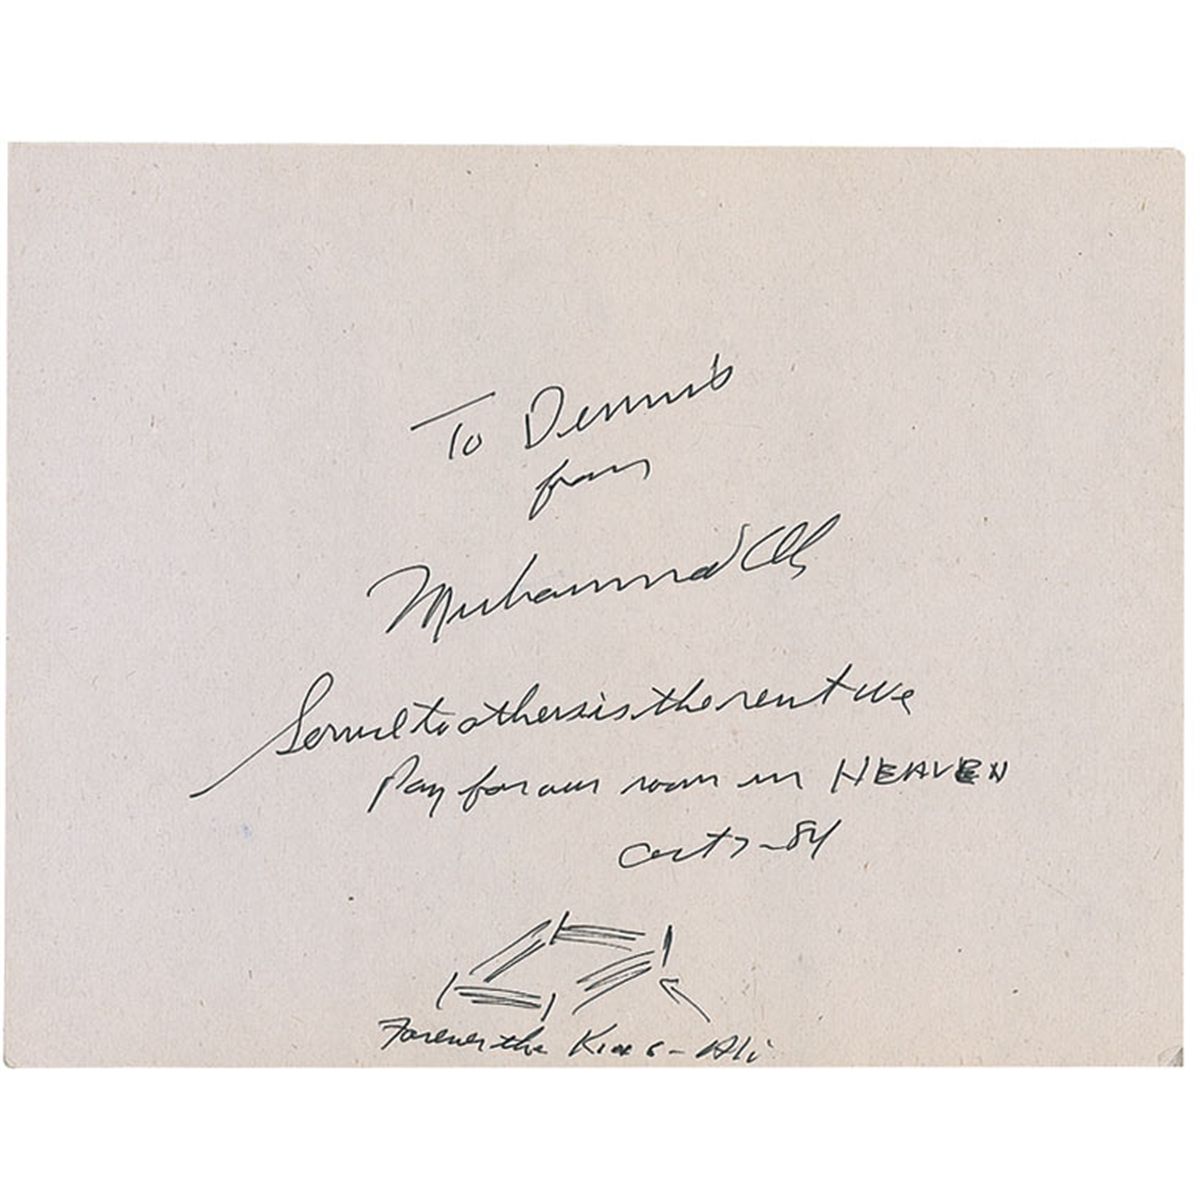 To Dennis
from
Muhammad Ali
Service to others is the rent we
Pay for our room in HEAVEN
Oct 7-84
Forever the King - Ali